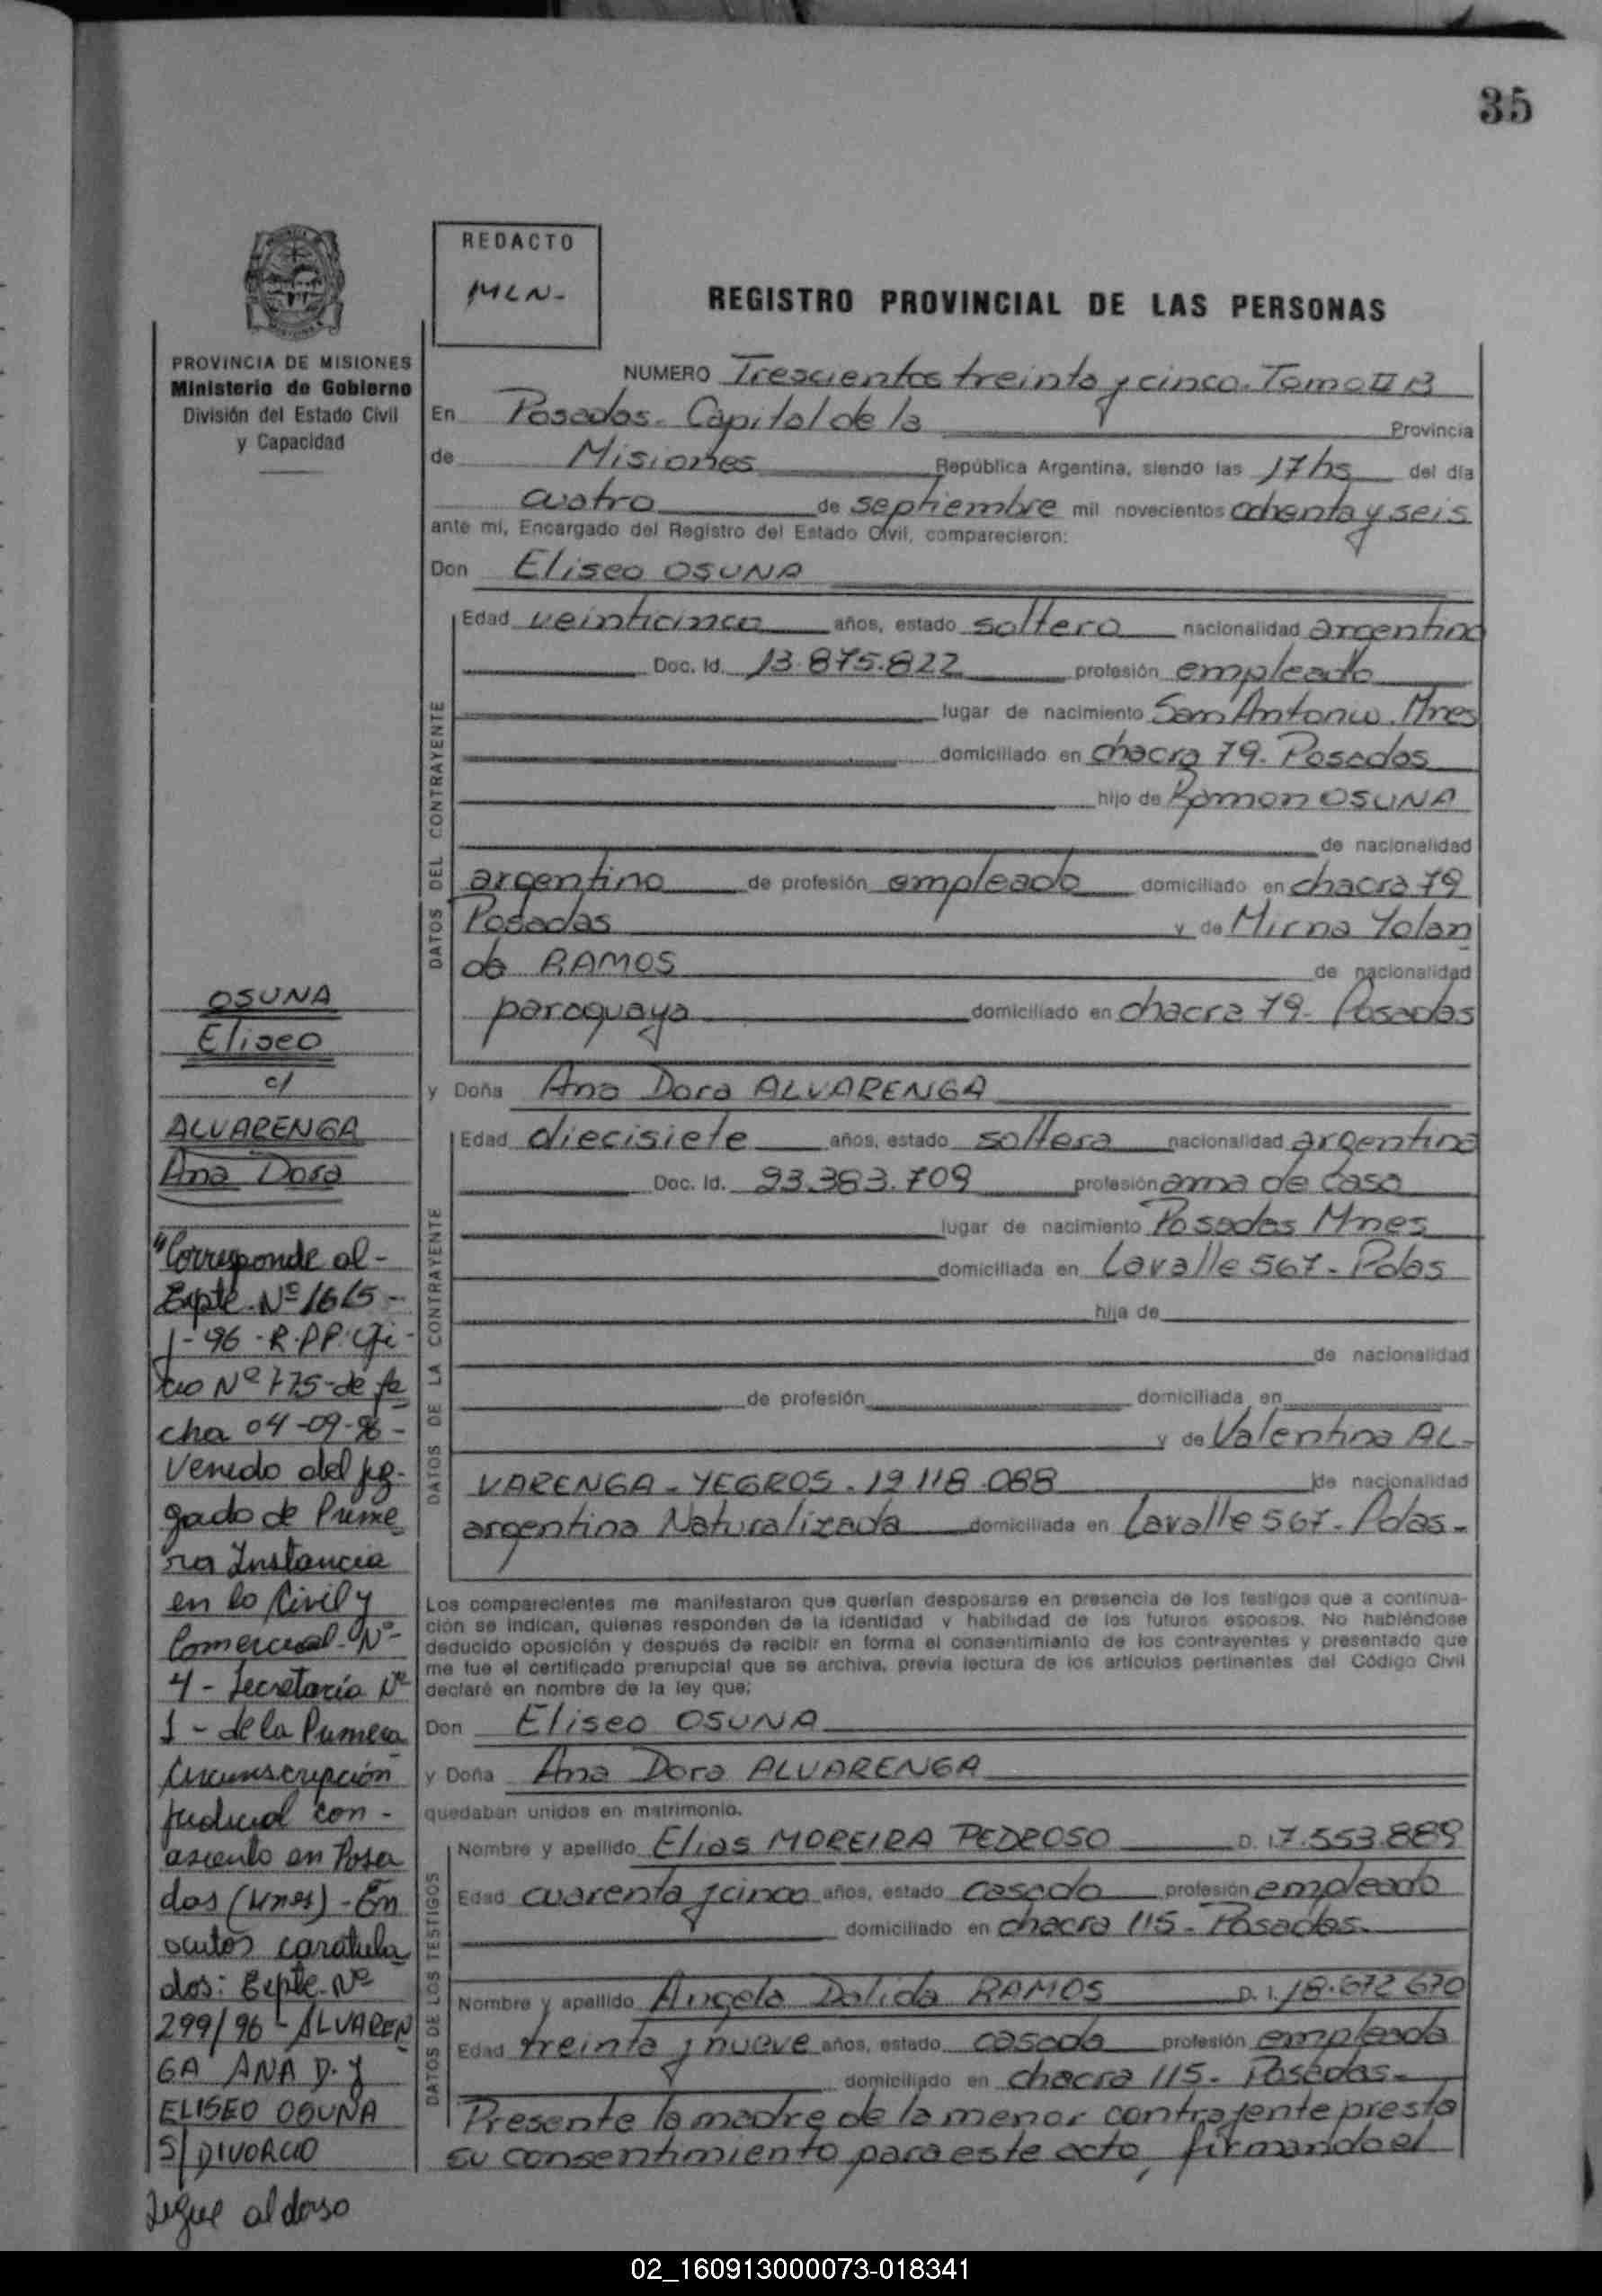 35
REDACTO
MLN-
REGISTRO PROVINCIAL DE LAS PERSONAS
PROVINCIA DE MISIONES
Ministerio de Gobierno
División del Estado Civil
y Capacidad
NUMERO Trescientos treinta y cinco. Tomo II B
En Posadas. Capital de la Provincia
de Misiones República Argentina, siendo las 17 hs del día
cuatro de septiembre mil novecientos ochenta y seis
ante mí, Encargado del Registro del Estado Civil, comparecieron:
Don Eliseo OSUNA
DATOS DEL CONTRAYENTE
Edad veinticinco años, estado soltero nacionalidad argentina
Doc. Id. 13.875.822 profesión empleado
lugar de nacimiento San Antonio. Mnes
domiciliado en chacra 79. Posadas
hijo de Ramon OSUNA
de nacionalidad
argentino de profesión empleado domiciliado en chacra 79
Posadas y de Mirna Yolan
da RAMOS de nacionalidad
paraguaya domiciliado en chacra 79. Posadas
y Doña Ana Dora ALVARENGA
DATOS DE LA CONTRAYENTE
Edad diecisiete años, estado soltera nacionalidad argentina
Doc. Id. 93.383.709 profesión ama de casa
lugar de nacimiento Posadas Mnes
domiciliada en Lavalle 567. Pdas
hija de
de nacionalidad
de profesión domiciliada en
y de Valentina AL-
VARENGA - YEGROS. 12.118.088 de nacionalidad
argentina Naturalizada domiciliada en Lavalle 567. Pdas.-
Los comparecientes me manifestaron que querían desposarse en presencia de los testigos que a continua-
ción se indican, quienes responden de la identidad y habilidad de los futuros esposos. No habiéndose
deducido oposición y después de recibir en forma el consentimiento de los contrayentes y presentado que
me fue el certificado prenupcial que se archiva, previa lectura de los artículos pertinentes del Código Civil
declaré en nombre de la ley que:
Don Eliseo OSUNA
y Doña Ana Dora ALVARENGA
quedaban unidos en matrimonio.
DATOS DE LOS TESTIGOS
Nombre y apellido Elias MOREIRA PEDROSO D. I. 7.553.889
Edad cuarenta y cinco años, estado casado profesión empleado
domiciliado en chacra 115 - Posadas.
Nombre y apellido Angela Dalida RAMOS D. I. 18.672.670
Edad treinta y nueve años, estado casada profesión empleada
domiciliado en chacra 115. Posadas.-
Presente la madre de la menor contrayente presta
su consentimiento para este acto, firmando el
OSUNA
Eliseo
c/
ALVARENGA
Ana Dora
"Corresponde al-
Expte. Nº 1615-
J-96-R.P.P. Ofi-
cio Nº 775-de fe
cha 04-09-96-
venido del juz-
gado de Prime
ra Instancia
en lo Civil y
Comercial-Nº-
4 - Secretaría Nº
1 - de la Primera
Circunscripción
Judicial con-
asiento en Posa
das (Mnes) - En
autos caratula
dos: Expte. Nº
299/96 - ALVAREN
GA ANA D. Y
ELISEO OSUNA
S/ DIVORCIO
Sigue al dorso
02_160913000073-018341